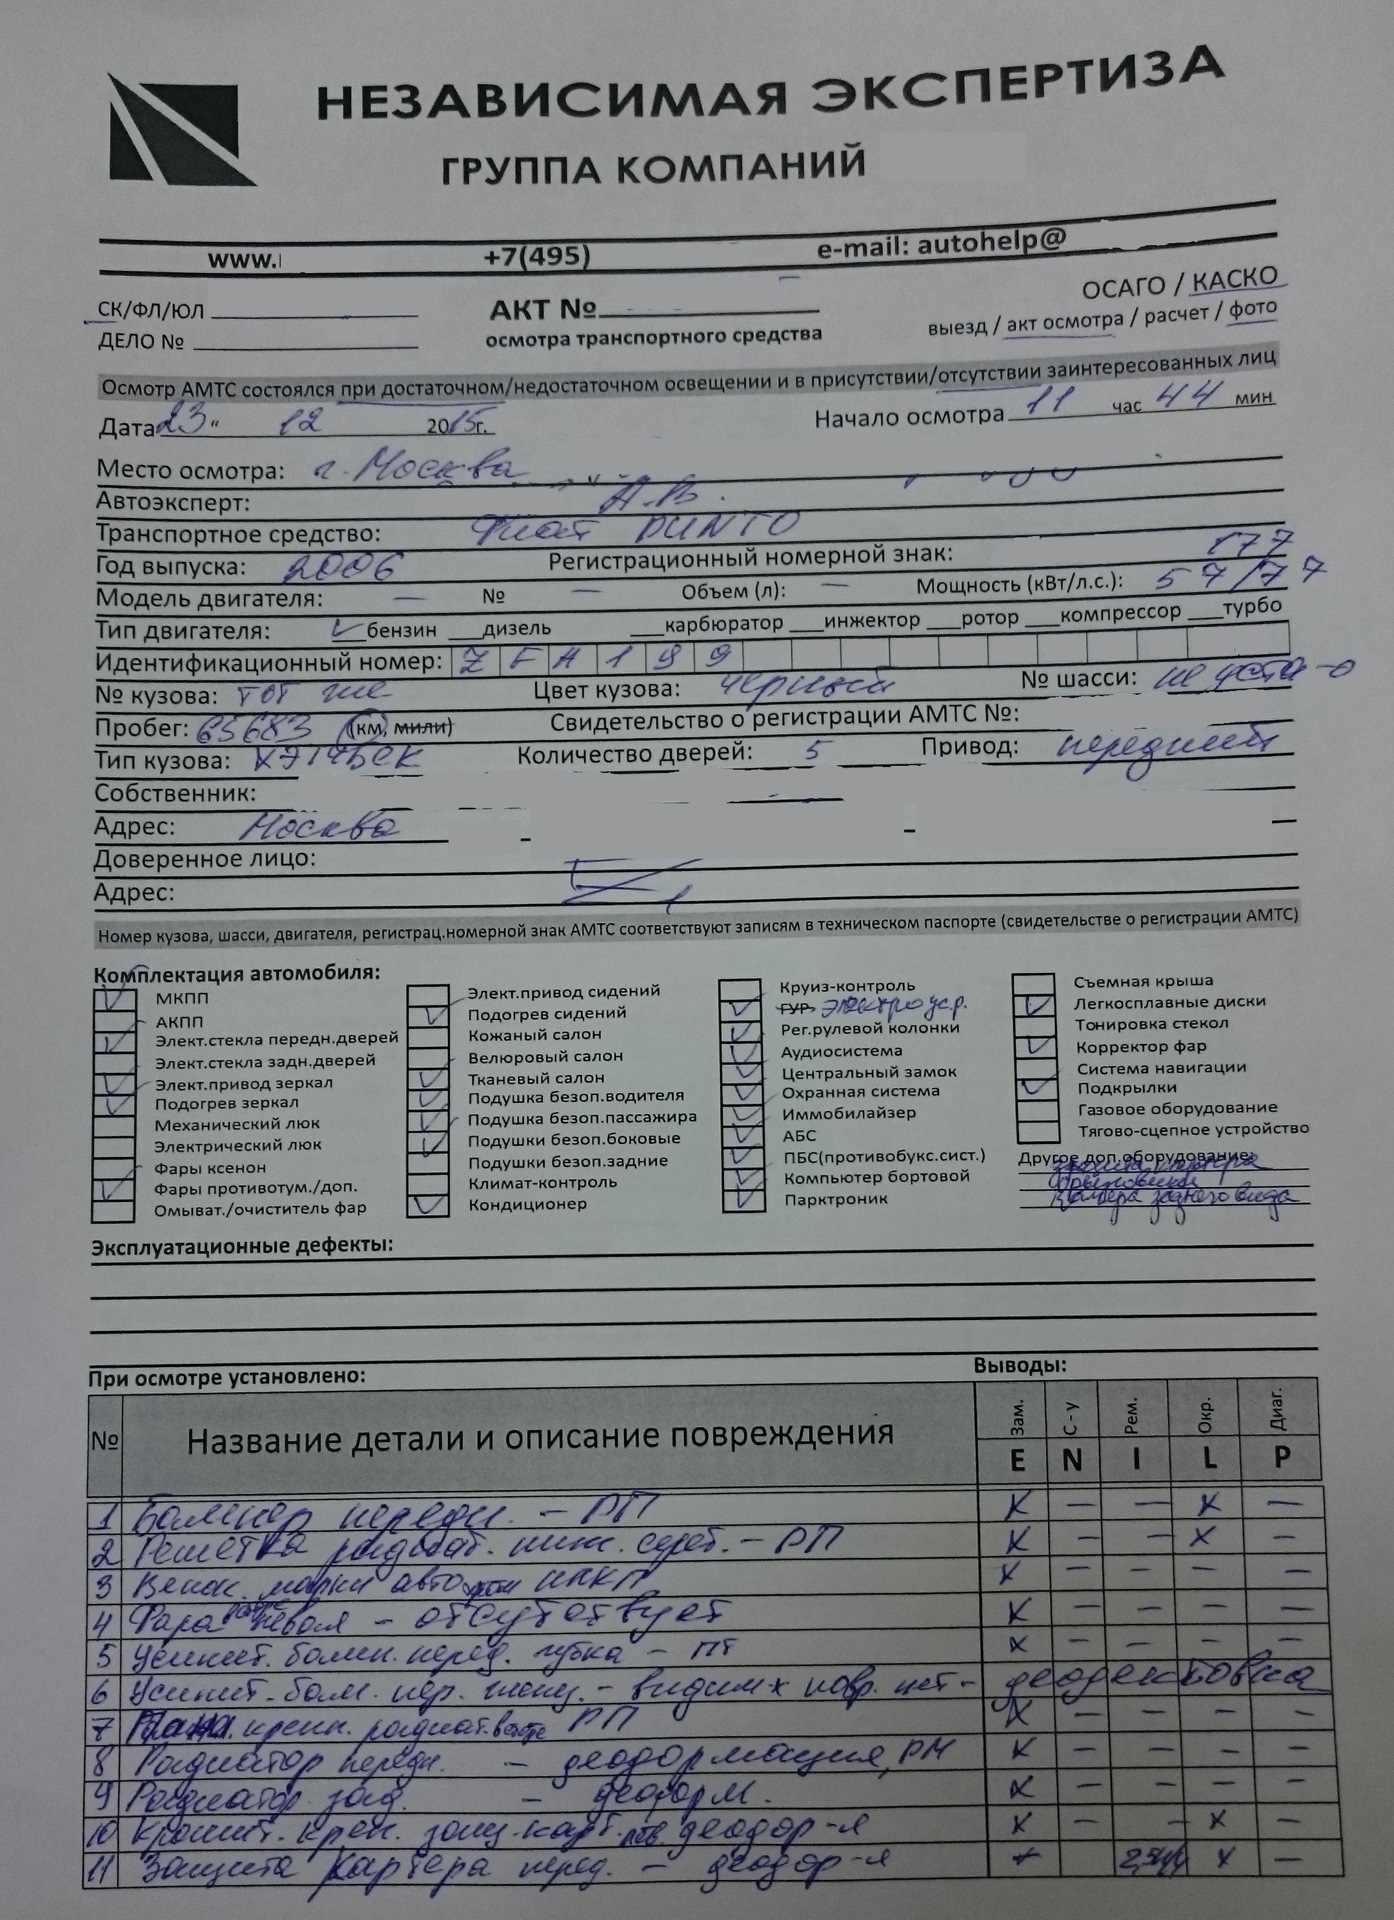 НЕЗАВИСИМАЯ ЭКСПЕРТИЗА
ГРУППА КОМПАНИЙ
www. +7(495) e-mail: autohelp@
СК/ФЛ/ЮЛ АКТ № ОСАГО / КАСКО
ДЕЛО № осмотра транспортного средства выезд / акт осмотра / расчет / фото
Осмотр АМТС состоялся при достаточном/недостаточном освещении и в присутствии/отсутствии заинтересованных лиц
Дата 23 " 12 2015г. Начало осмотра 11 час 44 мин
Место осмотра: г. Москва
Автоэксперт: А.В.
Транспортное средство: Фиат PUNTO
Год выпуска: 2006 Регистрационный номерной знак: 177
Модель двигателя: — № — Объем (л): — Мощность (кВт/л.с.): 57/77
Тип двигателя: бензин дизель карбюратор инжектор ротор компрессор турбо
Идентификационный номер: Z F A 1 9 9
№ кузова: тот же Цвет кузова: черный № шасси: не уста-о
Пробег: 65683 (км, мили) Свидетельство о регистрации АМТС №:
Тип кузова: ХЭТЧБЕК Количество дверей: 5 Привод: передний
Собственник:
Адрес: Москва
Доверенное лицо:
Адрес:
Номер кузова, шасси, двигателя, регистрац.номерной знак АМТС соответствуют записям в техническом паспорте (свидетельстве о регистрации АМТС)
Комплектация автомобиля:
МКПП
АКПП
Элект.стекла передн.дверей
Элект.стекла задн.дверей
Элект.привод зеркал
Подогрев зеркал
Механический люк
Электрический люк
Фары ксенон
Фары противотум./доп.
Омыват./очиститель фар
Элект.привод сидений
Подогрев сидений
Кожаный салон
Велюровый салон
Тканевый салон
Подушка безоп.водителя
Подушка безоп.пассажира
Подушки безоп.боковые
Подушки безоп.задние
Климат-контроль
Кондиционер
Круиз-контроль
ГУР электроус р.
Рег.рулевой колонки
Аудиосистема
Центральный замок
Охранная система
Иммобилайзер
АБС
ПБС(противобукс.сист.)
Компьютер бортовой
Парктроник
Съемная крыша
Легкосплавные диски
Тонировка стекол
Корректор фар
Система навигации
Подкрылки
Газовое оборудование
Тягово-сцепное устройство
Другое доп.оборудование:
защита картера
камера заднего вида
Эксплуатационные дефекты:
При осмотре установлено: Выводы:
№ Название детали и описание повреждения Зам. С-у Рем. Окр. Диаг.
E N I L P
1 Бампер передн. — РП X — — X —
2 Решетка радиат. ниж. серед. — РП X — — X —
3 марки авто X — — — —
4 Фара левая — отсутствует X — — — —
5 Усилит. бамп. перед. губка — X — — — —
6 Усилит. бамп. пер. — видимых повр. нет —
7 крепл. радиат. РП X — — — —
8 Радиатор передн. — деформация, РМ X — — — —
9 Радиатор зад. — деформ. X — — — —
10 Кроншт. креп. защ. карт. лев. дефор-я X — — X —
11 Защита картера перед. — дефор-я X —